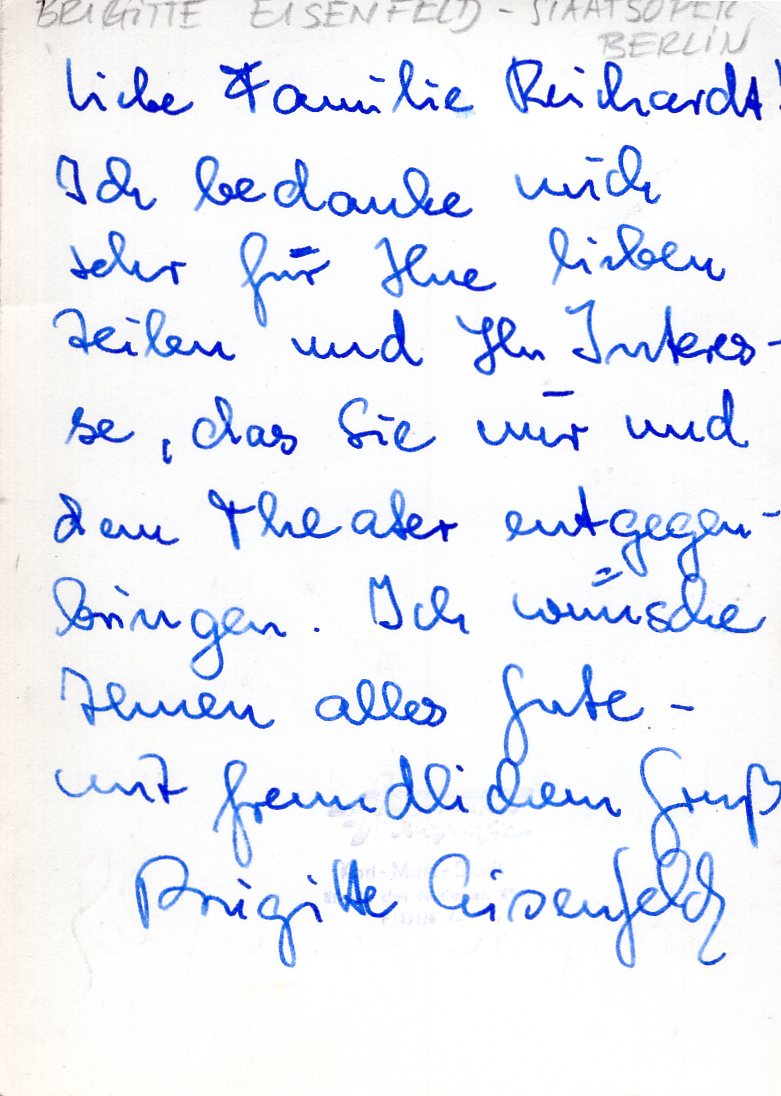 BRIGITTE EISENFELD - STAATSOPER
BERLIN
Liebe Familie Reichardt!
Ich bedanke mich
sehr für Ihre lieben
Zeilen und Ihr Interes-
se, das Sie mir und
dem Theater entgegen-
bringen. Ich wünsche
Ihnen alles Gute -
mit freundlichem Gruß
Brigitte Eisenfeld